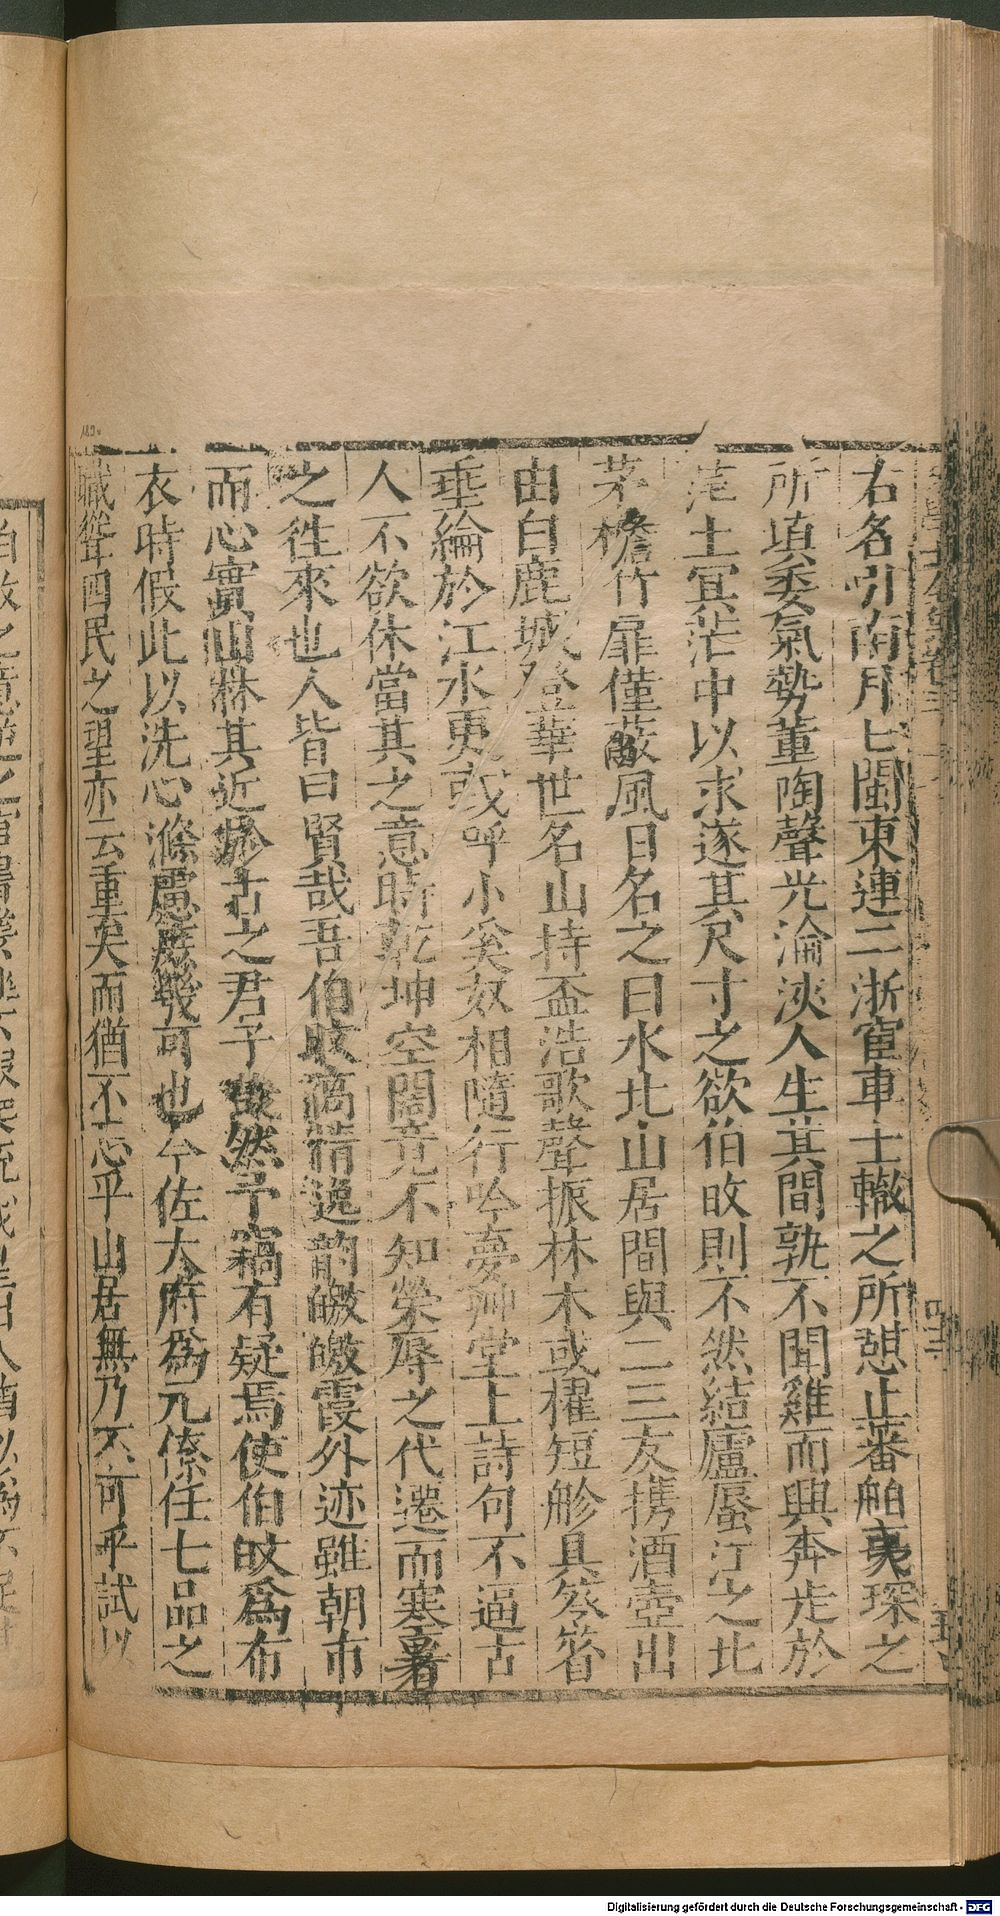 右名引南月匕閩東連二浙宦車士轍之所憩止蕃舶夷琛之
所填委氣勢薰陶聲光淪浹人生其間孰不聞雞而興奔走於
土冥茫中以求遂其尺寸之欲伯攻則不然結廬蜃江之北
茅檐竹扉僅蔽風日名之曰水北山居間與二三友携酒壺出
由白鹿城登華世名山持盃浩歌聲振林木或櫂短舲具答箵
垂綸於江水更或呼小奚奴相隨行吟夢堂上詩句不逼古
人不欲休當其之意時乾坤空闊竟不知榮辱之代遷而寒暑
之徃來也人皆曰賢哉吾伯攻高情逸韵皦皦霞外迹雖朝市
而心實山林其近於古之君子歟然予竊有疑焉使伯攻爲布
衣時假此以洗心滌慮庶幾可也今佐大府爲元僚任七品之
職聳四民之望亦云重矣而猶不忘乎山居無乃不可乎試以
Digitalisierung gefördert durch die Deutsche Forschungsgemeinschaft - DFG